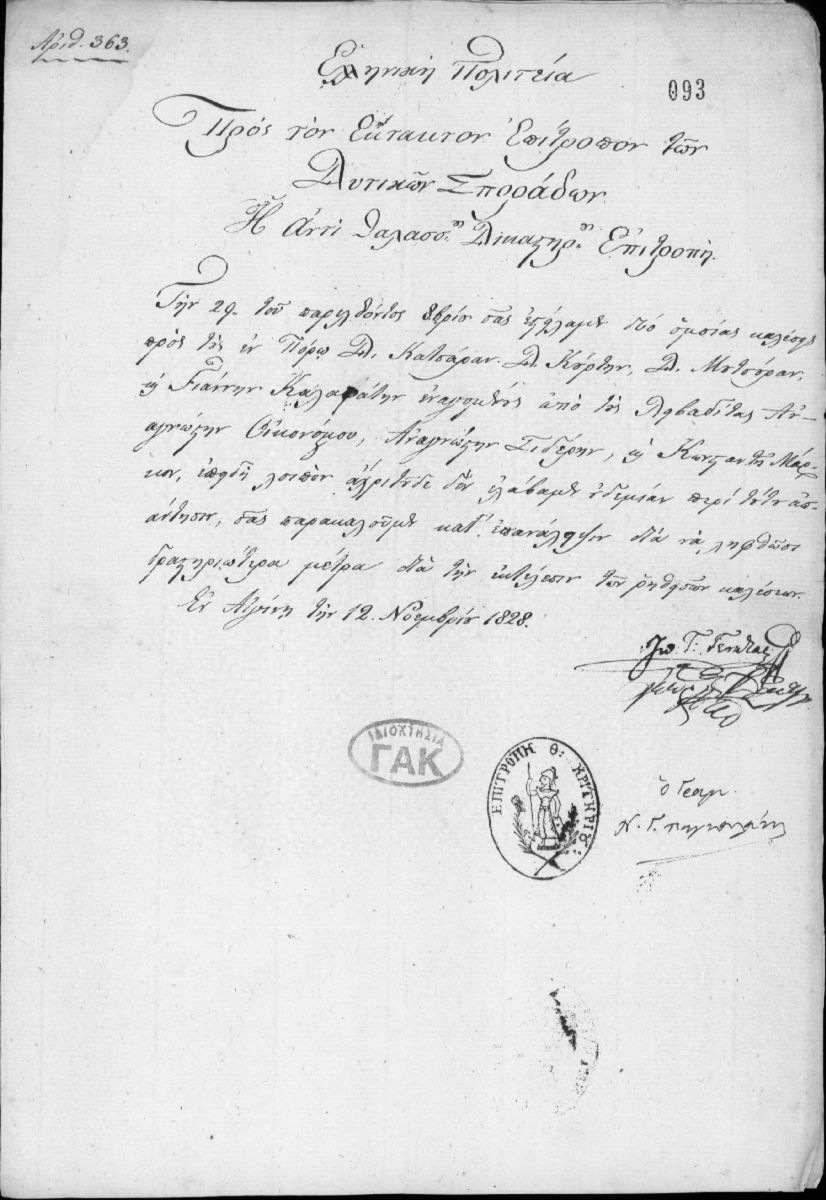 Αριθ. 363.
Ἑλληνικὴ Πολιτεία
093
Πρὸς τὸν Ἔκτακτον Ἐπίτροπον τῶν
Δυτικῶν Σποράδων.
Ἡ ἀντὶ θαλασσ.ου Δικαστηρ.ου Ἐπιτροπή.
Τὴν 29. τοῦ παρελθόντος 8βρίου σᾶς ἐστείλαμεν δύο ὁμοίας καλέσεις
πρὸς τοὺς ἐν Πόρῳ Δ. Κατσάραν. Δ. Κόρτην, Δ.
καὶ Γιάννην Καλαφάτην ἐναγομένους ἀπὸ τοὺς Ληβαδίτας Ἀνα-
γνώστην Οἰκονόμου, Ἀναγνώστην Σιδέρην, καὶ Κωνσταντῆ Μάρ-
κου, ἐπειδὴ λοιπὸν ἄχρι τοῦδε δὲν ἐλάβαμεν οὐδεμίαν περὶ τούτου ἀπ-
άντησιν, σᾶς παρακαλοῦμεν κατ' ἐπανάληψιν διὰ νὰ ληφθῶσι
δραστηριώτερα μέτρα διὰ τὴν ἐκτέλεσιν τῶν ῥηθησῶν καλέσεων.
Ἐν Αἰγίνῃ τὴν 12. Νοεμβρίου 1828.
Ἰω. Γ: Γενατᾶς
ΙΔΙΟΚΤΗΣΙΑ
ΓΑΚ
ΕΠΙΤΡΟΠΗ Θ: ΚΡΙΤΗΡΙΟΥ:
ὁ Γραμ.
Ν. Γ.